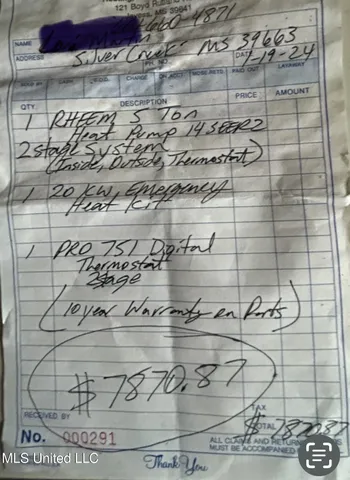 121 Boyd Rutland
Jayess, MS 39641
660-4871
NAME
Silver Creek MS 39663
ADDRESS
DATE 1-19-24
SOLD BY C.O.D. CHARGE ON ACCT. MDSE. RETD. PAID OUT LAYAWAY
QTY. DESCRIPTION PRICE AMOUNT
1 RHEEM 5 Ton
Heat Pump 14 SEER2
2 stage System
(Inside, Outside, Thermostat)
1 20 KW, Emergency
Heat Kit
1 PRO 751 Digital
Thermostat
2 stage
(10 year Warranty on Parts)
$7870.87
RECEIVED BY
TAX
TOTAL $7870.87
No. 000291
ALL CLAIMS AND RETURNED
MUST BE ACCOMPANIED
Thank You
MLS United LLC